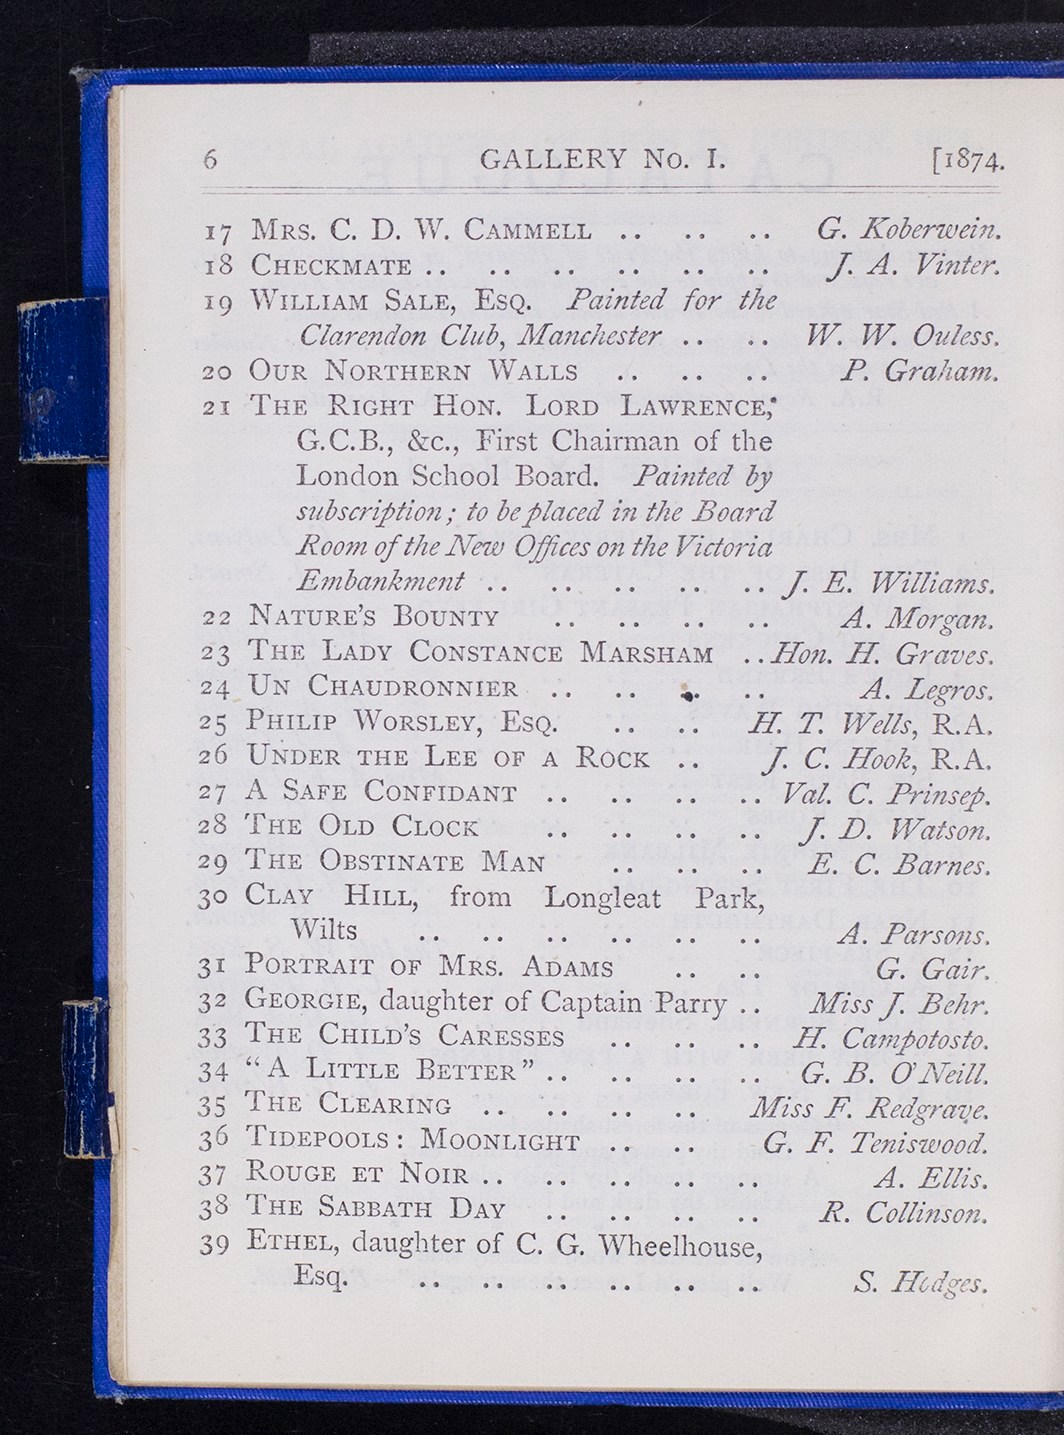 6 GALLERY No. I. [1874.
17 MRS. C. D. W. CAMMELL .. .. .. G. Koberwein.
18 CHECKMATE .. .. .. .. .. .. J. A. Vinter.
19 WILLIAM SALE, ESQ. Painted for the
Clarendon Club, Manchester .. .. W. W. Ouless.
20 OUR NORTHERN WALLS .. .. .. P. Graham.
21 THE RIGHT HON. LORD LAWRENCE,
G.C.B., &c., First Chairman of the
London School Board. Painted by
subscription; to be placed in the Board
Room of the New Offices on the Victoria
Embankment .. .. .. .. .. J. E. Williams.
22 NATURE'S BOUNTY .. .. .. .. A. Morgan.
23 THE LADY CONSTANCE MARSHAM .. Hon. H. Graves.
24 UN CHAUDRONNIER .. .. .. .. A. Legros.
25 PHILIP WORSLEY, ESQ. .. .. H. T. Wells, R.A.
26 UNDER THE LEE OF A ROCK .. J. C. Hook, R.A.
27 A SAFE CONFIDANT .. .. .. .. Val. C. Prinsep.
28 THE OLD CLOCK .. .. .. .. J. D. Watson.
29 THE OBSTINATE MAN .. .. .. E. C. Barnes.
30 CLAY HILL, from Longleat Park,
Wilts .. .. .. .. .. .. A. Parsons.
31 PORTRAIT OF MRS. ADAMS .. .. G. Gair.
32 GEORGIE, daughter of Captain Parry .. Miss J. Behr.
33 THE CHILD'S CARESSES .. .. .. H. Campotosto.
34 "A LITTLE BETTER" .. .. .. .. G. B. O'Neill.
35 THE CLEARING .. .. .. .. Miss F. Redgrave.
36 TIDEPOOLS: MOONLIGHT .. .. G. F. Teniswood.
37 ROUGE ET NOIR .. .. .. .. .. A. Ellis.
38 THE SABBATH DAY .. .. .. .. R. Collinson.
39 ETHEL, daughter of C. G. Wheelhouse,
Esq. .. .. .. .. .. .. S. Hodges.